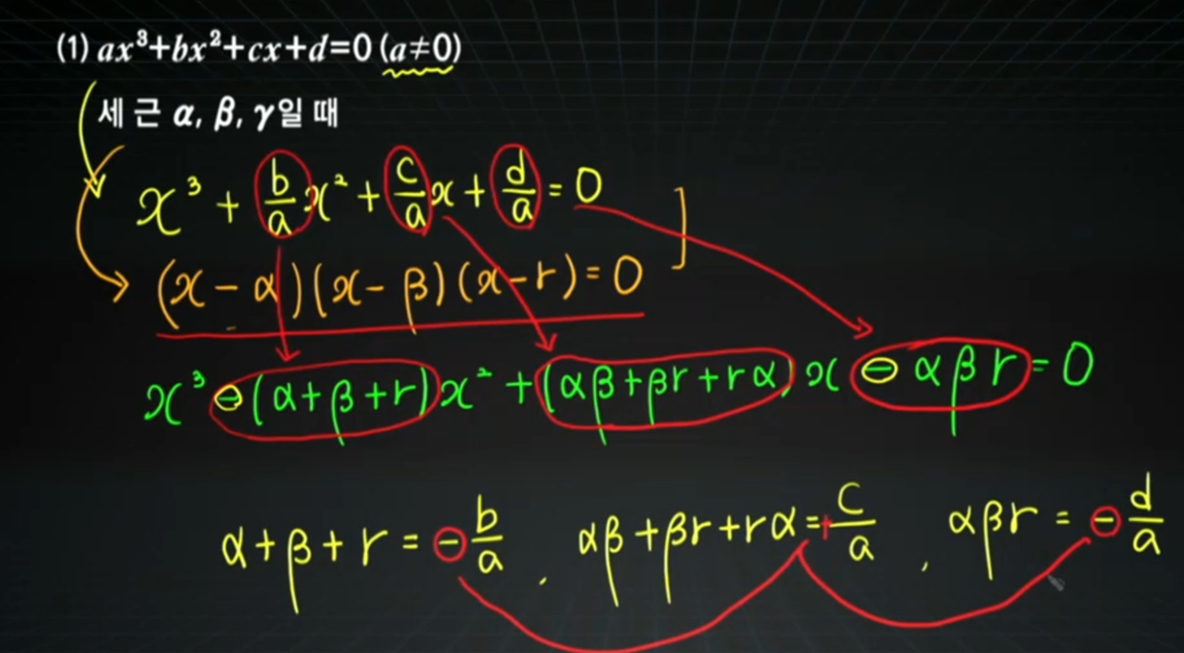 (1) ax³+bx²+cx+d=0 (a≠0)
세 근 α, β, γ일 때
x³ + b/a x² + c/a x + d/a = 0
(x-α)(x-β)(x-r)=0
x³ ⊖(α+β+r)x² +(αβ+βr+rα)x ⊖ αβr=0
α+β+r = ⊖ b/a , αβ+βr+rα=+ c/a , αβr = ⊖ d/a